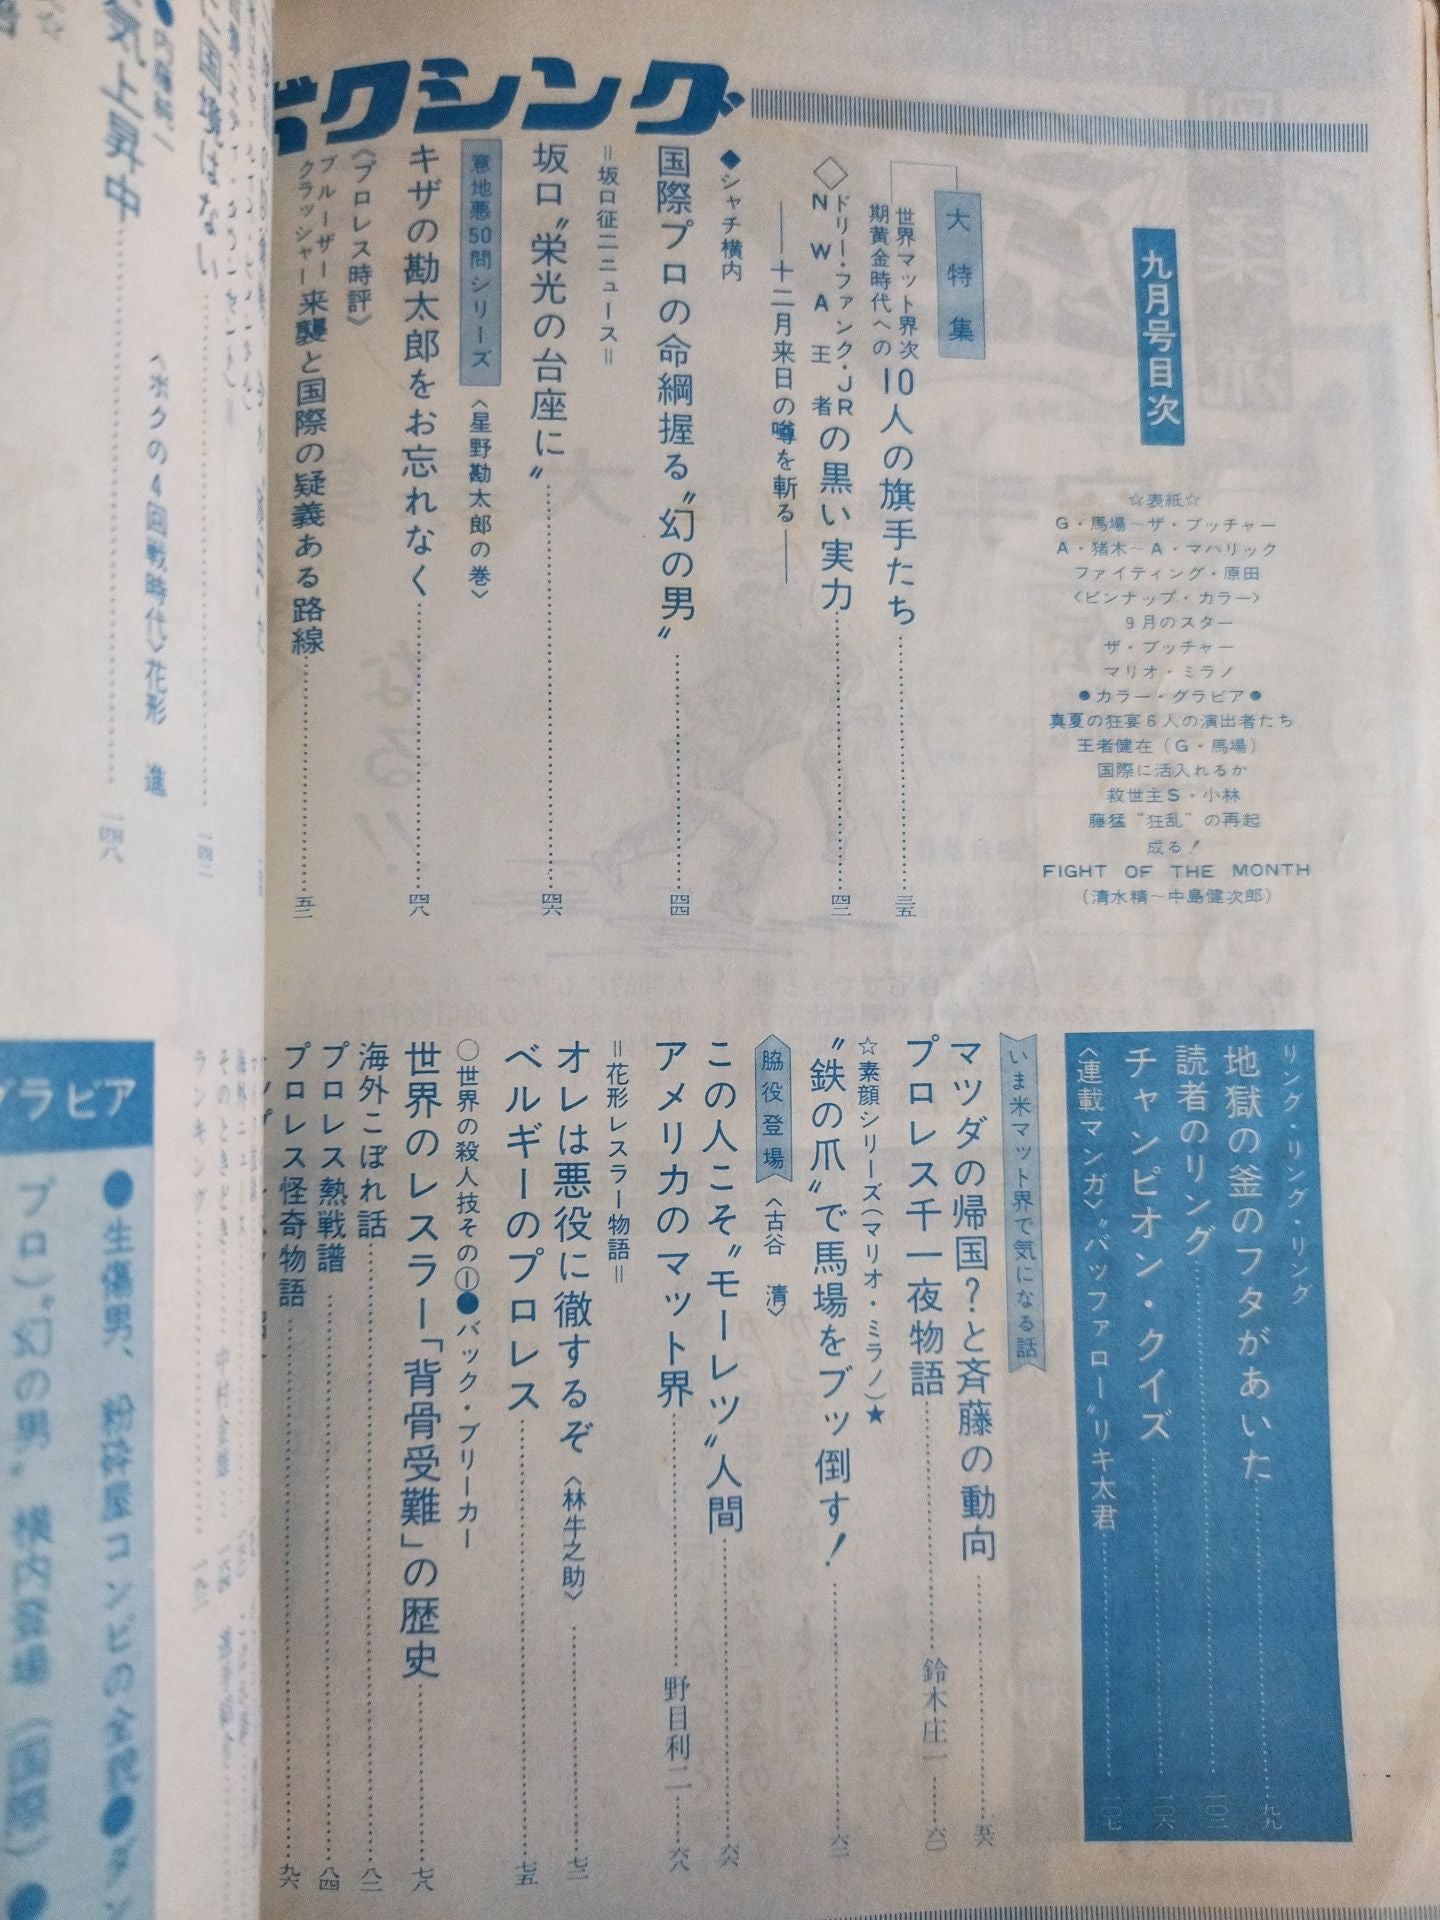 ボクシング
九月号目次
☆表紙☆
G・馬場〜ザ・ブッチャー
A・猪木〜A・マハリック
ファイティング・原田
〈ピンナップ・カラー〉
9月のスター
ザ・ブッチャー
マリオ・ミラノ
●カラー・グラビア●
真夏の狂宴6人の演出者たち
王者健在(G・馬場)
国際に活入れるか
救世主S・小林
藤猛“狂乱”の再起
成る!
FIGHT OF THE MONTH
(清水精〜中島健次郎)
大特集
世界マット界次
期黄金時代への
10人の旗手たち……三五
◇ドリー・ファンク・JR
NWA王者
の黒い実力……四二
――十二月来日の噂を斬る――
◆シャチ横内
国際プロの命綱握る〝幻の男〟……四四
=坂口征二ニュース=
坂口〝栄光の台座に〟……四六
意地悪50問シリーズ
〈星野勘太郎の巻〉
キザの勘太郎をお忘れなく……四八
〈プロレス時評〉
ブルーザー
クラッシャー
来襲と国際の疑義ある路線……五二
リング・リング・リング
地獄の釜のフタがあいた……九九
読者のリング……一〇二
チャンピオン・クイズ……一〇六
〈連載マンガ〉〝バッファロー〟リキ太君……一〇七
いま米マット界で気になる話
マツダの帰国?と斉藤の動向……五六
プロレス千一夜物語……鈴木庄一……六〇
☆素顔シリーズ(マリオ・ミラノ)★
〝鉄の爪〟で馬場をブッ倒す!……六二
脇役登場
〈古谷 清〉
この人こそ〝モーレツ〟人間……六六
アメリカのマット界……野目利二……六八
=花形レスラー物語=
オレは悪役に徹するぞ〈林牛之助〉……七二
ベルギーのプロレス……七五
○世界の殺人技その①●バック・ブリーカー
世界のレスラー「背骨受難」の歴史……七八
海外こぼれ話……八二
プロレス熱戦譜……八四
プロレス怪奇物語……九六
国境はない
気上昇中……一四八
〈ボクの4回戦時代〉花形 進
そのときどき……中村金雄
ランキング
グラビア
●生傷男、粉砕屋コンビの全貌●ダン
プロ)〝幻の男〟横内登場(国際)●